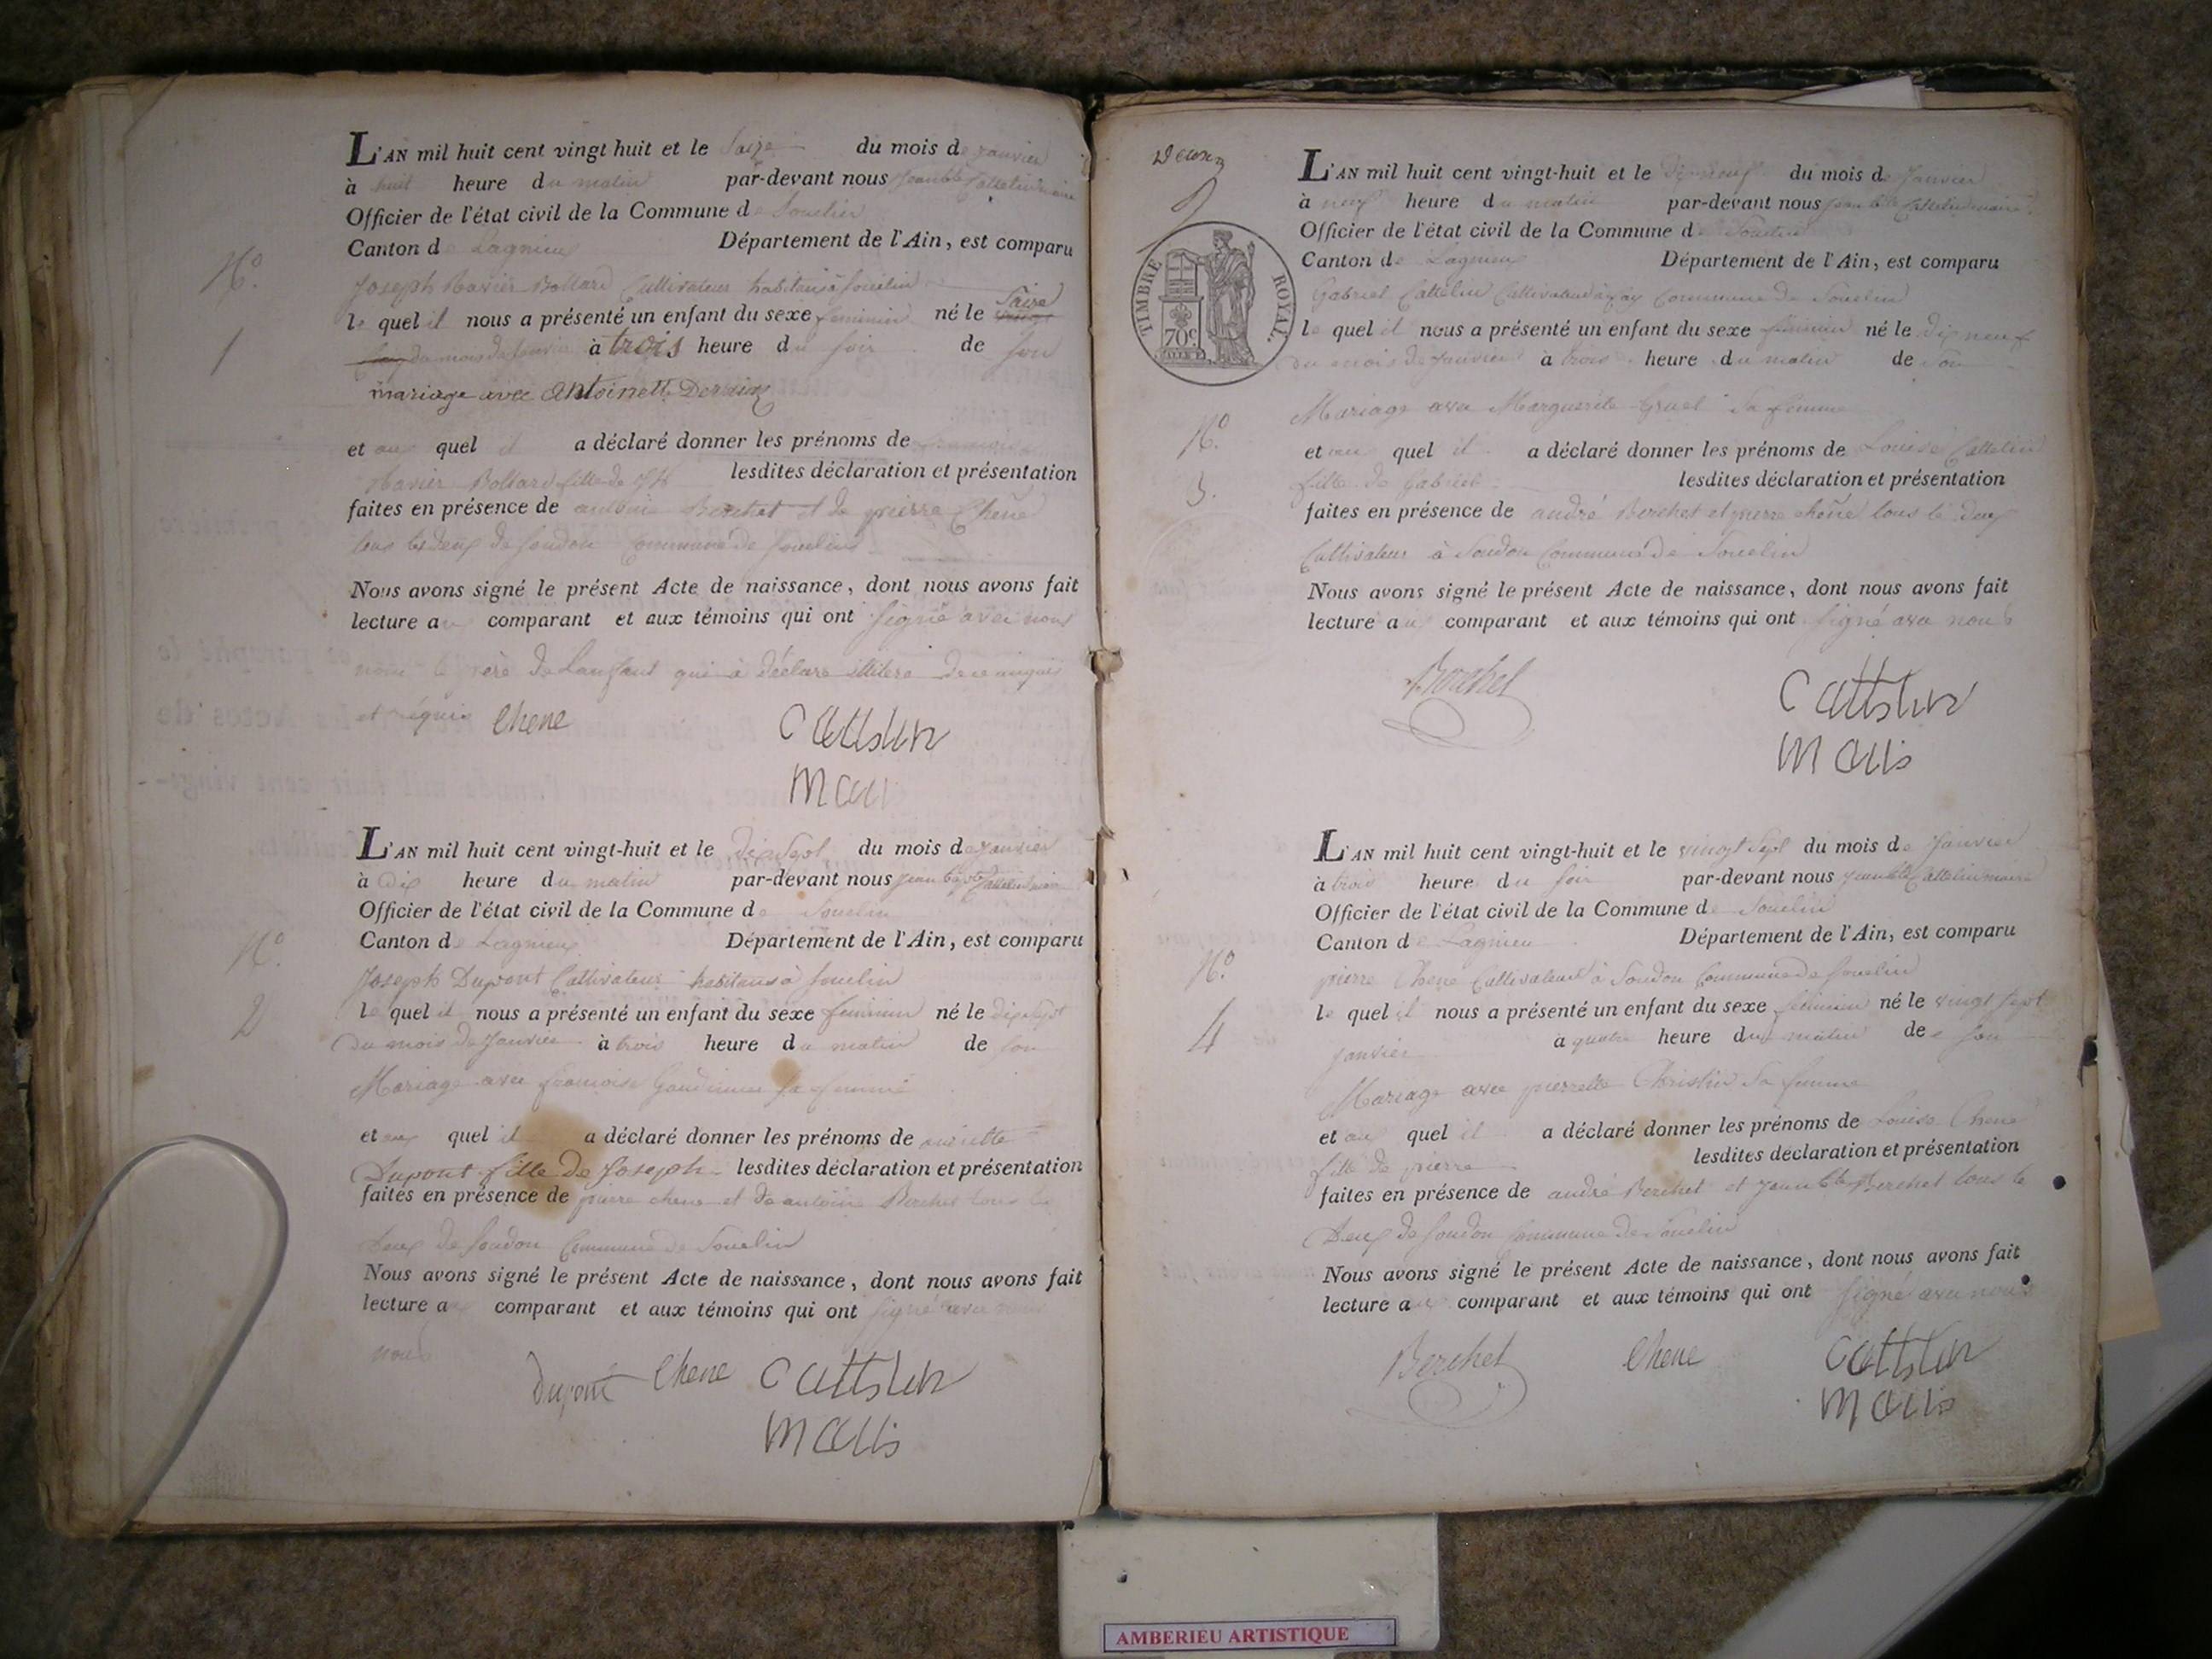 L'AN mil huit cent vingt huit et le Saize du mois de janvier
à huit heure du matin par-devant nous jean bte Cattelin maire
Officier de l'état civil de la Commune de Souclin
Canton de Lagnieu Département de l'Ain, est comparu
N.o
1
Joseph Xavier Bollard Cultivateur habitans à Souclin
le quel il nous a présenté un enfant du sexe feminin né le Saize
du mois de janvier à trois heure du soir de son
mariage avec Antoinette
et au quel il a déclaré donner les prénoms de
Xavier Bollard fille de lesdites déclaration et présentation
faites en présence de antoine Berchet et de pierre Chene
tous les deux de Soudon Commune de Souclin
Nous avons signé le présent Acte de naissance, dont nous avons fait
lecture au comparant et aux témoins qui ont signé avec nous
non le père de Lanfant qui à déclaré de ce enquis
et requis Chene Cattelin
L'AN mil huit cent vingt-huit et le dix Sept du mois de janvier
à dix heure du matin par-devant nous jean bapte Cattelin maire
Officier de l'état civil de la Commune de Souclin
Canton de Lagnieu Département de l'Ain, est comparu
N.o
2
Joseph Dupont Cultivateur habitans à Souclin
le quel il nous a présenté un enfant du sexe feminin né le dix Sept
du mois de Janvier à trois heure du matin de son
Mariage avec francoise sa femme
et au quel il a déclaré donner les prénoms de
Dupont fille de Joseph lesdites déclaration et présentation
faites en présence de pierre chene et de antoine Berchet tous les
deux de Soudon Commune de Souclin
Nous avons signé le présent Acte de naissance, dont nous avons fait
lecture au comparant et aux témoins qui ont signé avec nous
nous
Dupont Chene Cattelin
Maire
Deux
TIMBRE ROYAL.
70c
L'AN mil huit cent vingt-huit et le dix neuf du mois de Janvier
à neuf heure du matin par-devant nous jean bte Cattelin maire
Officier de l'état civil de la Commune de Souclin
Canton de Lagnieu Département de l'Ain, est comparu
Gabriel Cattelin Cultivateur à Commune de Souclin
le quel il nous a présenté un enfant du sexe féminin né le dix neuf
du mois de janvier à trois heure du matin de son
N.o
3.
Mariage avec Marguerite Gruel Sa femme
et au quel il a déclaré donner les prénoms de Louise Cattelin
fille de Gabriel lesdites déclaration et présentation
faites en présence de andré Berchet et pierre chene tous le deux
Cultivateur à Soudon Commune de Souclin
Nous avons signé le présent Acte de naissance, dont nous avons fait
lecture au comparant et aux témoins qui ont signé avec nous
Berchet Cattelin
Maire
L'AN mil huit cent vingt-huit et le vingt Sept du mois de Janvier
à trois heure du soir par-devant nous jean bte Cattelin maire
Officier de l'état civil de la Commune de Souclin
Canton de Lagnieu Département de l'Ain, est comparu
N.o
4
pierre Chene Cultivateur à Soudon Commune de Souclin
le quel il nous a présenté un enfant du sexe féminin né le vingt Sept
janvier à quatre heure du matin de son
Mariage avec pierrette Christin Sa femme
et au quel il a déclaré donner les prénoms de Louise Chene
fille de pierre lesdites déclaration et présentation
faites en présence de andré Berchet et jean bte Berchet tous le
Deux de Soudon Commune de Souclin
Nous avons signé le présent Acte de naissance, dont nous avons fait
lecture au comparant et aux témoins qui ont signé avec nous
Berchet Chene Cattelin
Maire
AMBERIEU ARTISTIQUE